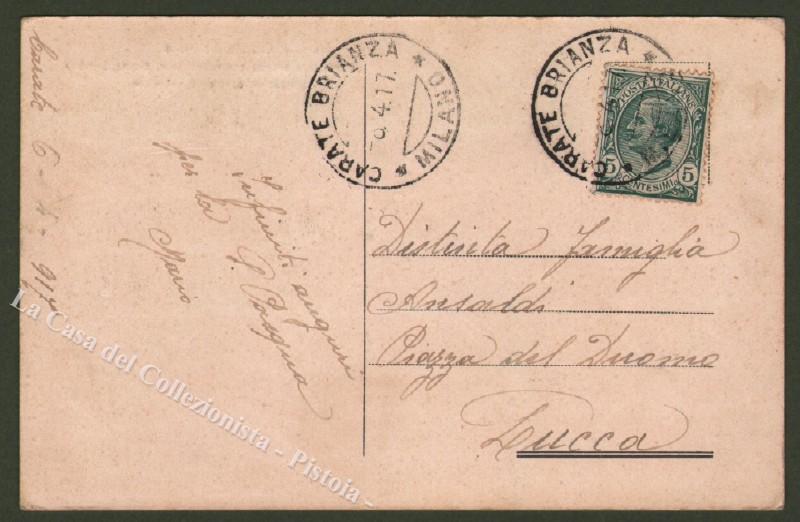 Carate 6 - 4 - 917
Infiniti auguri
per la S. Pasqua
Mario
CARATE BRIANZA * MILANO *
-6.4.17.
CARATE BRIANZA *
POSTE ITALIANE
5 CENTESIMI 5
Distinta famiglia
Ansaldi
Piazza del Duomo
Lucca
La Casa del Collezionista - Pistoia -